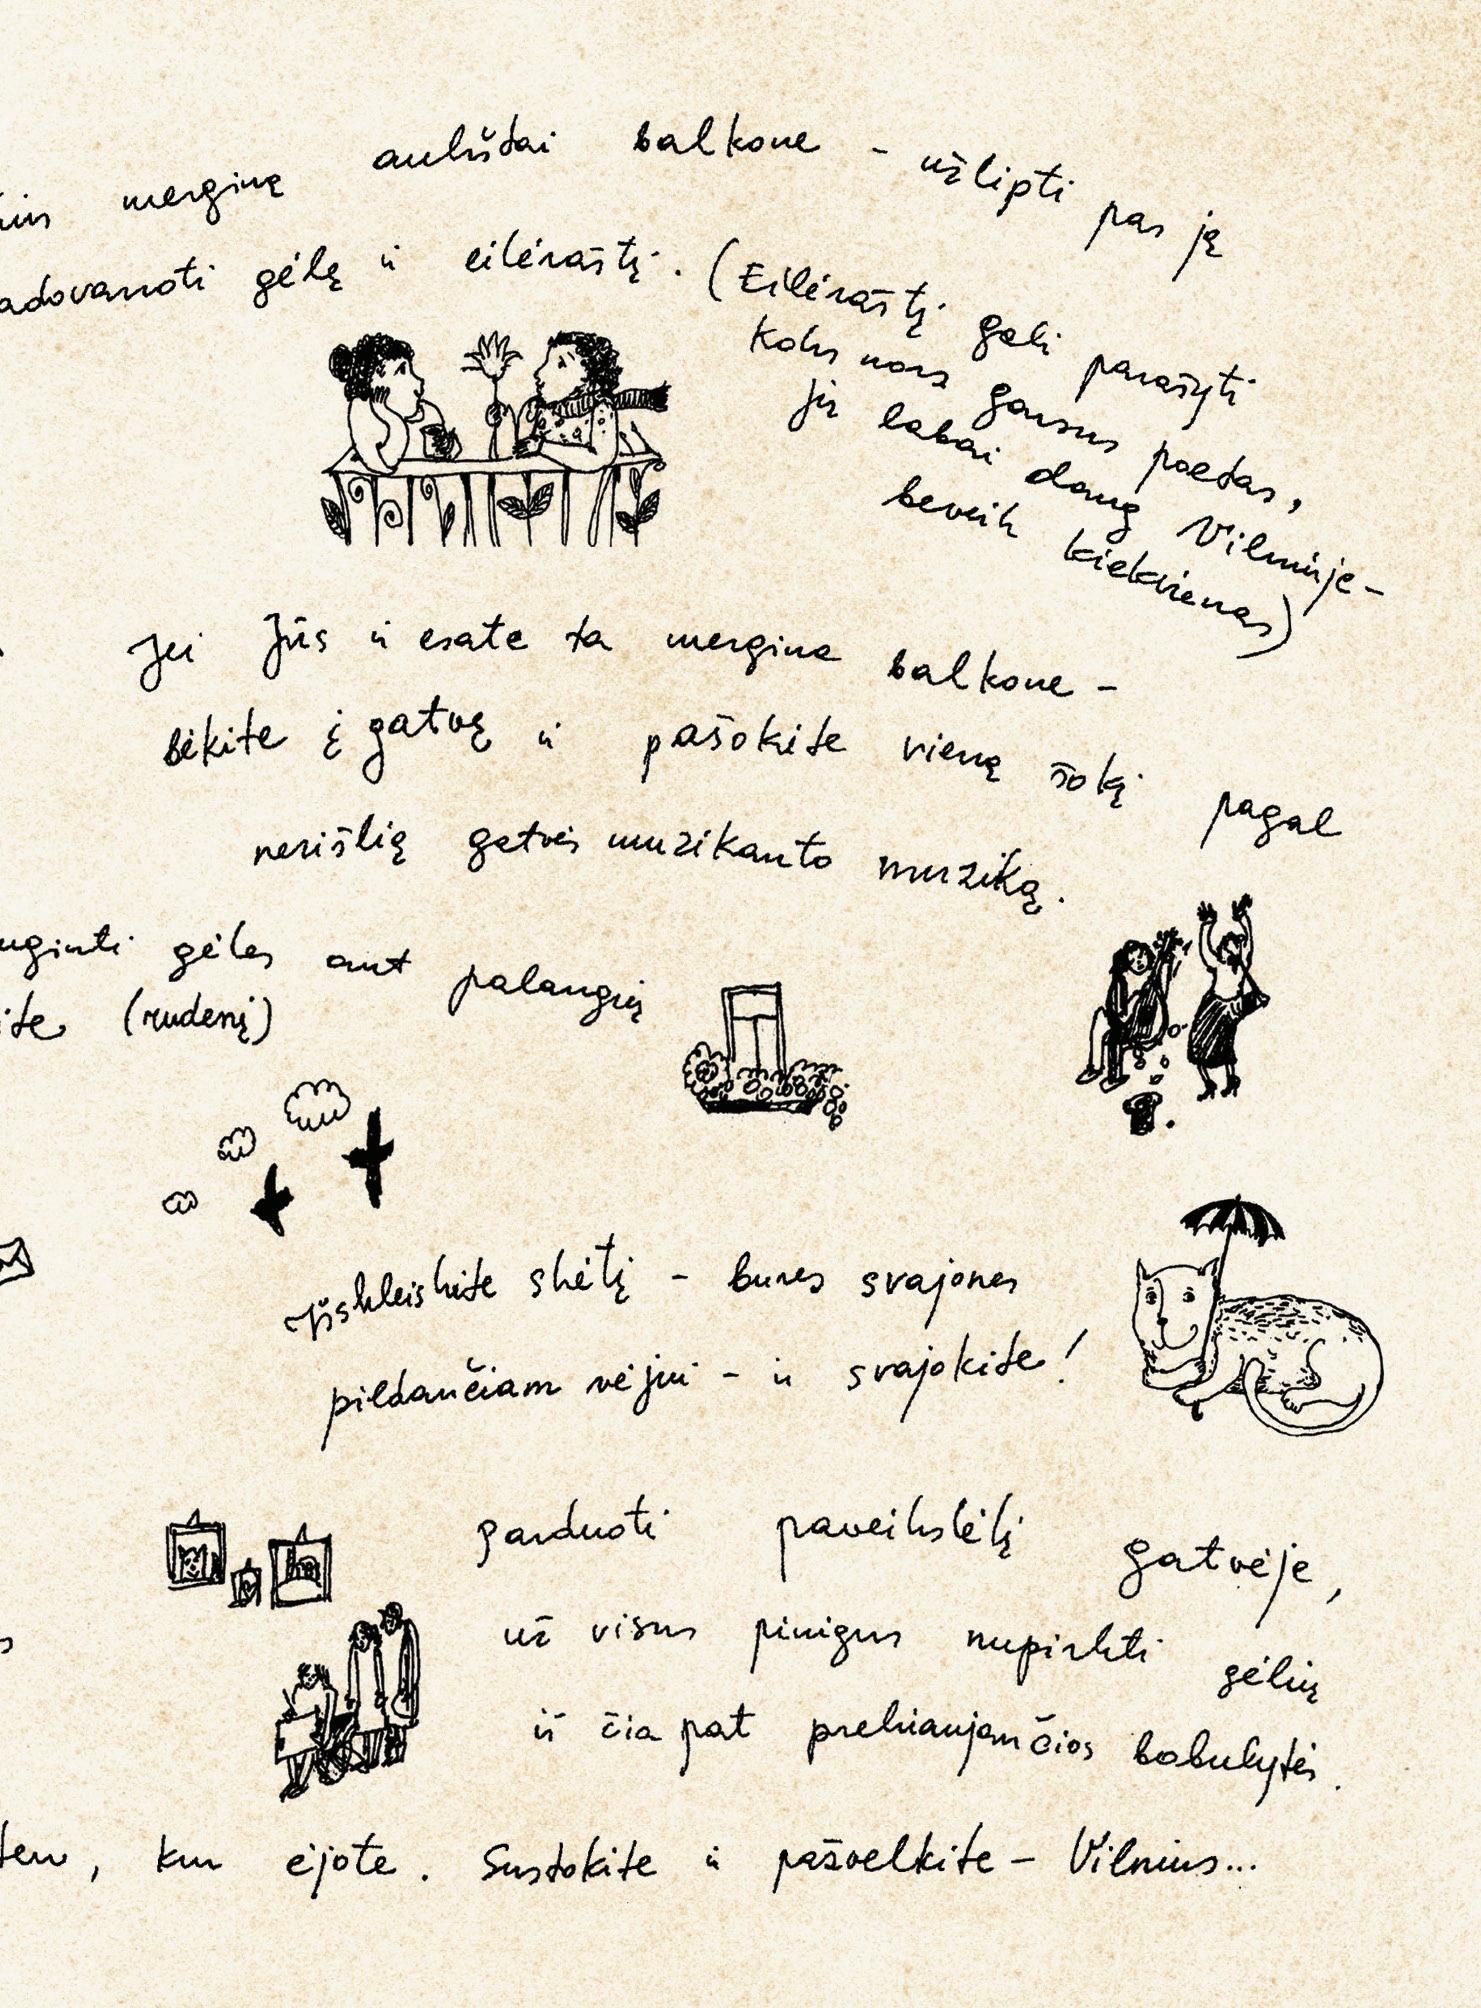 merginą aukštai balkone – užlipti pas ją
adovanoti gėlę ir eilėraštį. (Eilėraštį gali parašyti
koks nors garsus poetas,
jų labai daug Vilniuje –
beveik kiekvienas)
Jei Jūs ir esate ta mergina balkone –
bėkite į gatvę ir pašokite vieną šokį pagal
nerišlią gatvės muzikanto muziką.
uginti gėles ant palangių
ite (rudenį)
Išskleiskite skėtį – bures svajones
pildančiam vėjui – ir svajokite!
parduoti paveikslėlį gatvėje,
už visus pinigus nupirkti gėlių
iš čia pat prekiaujančios bobutytės.
ten, kur ėjote. Sustokite ir pažvelkite – Vilnius...